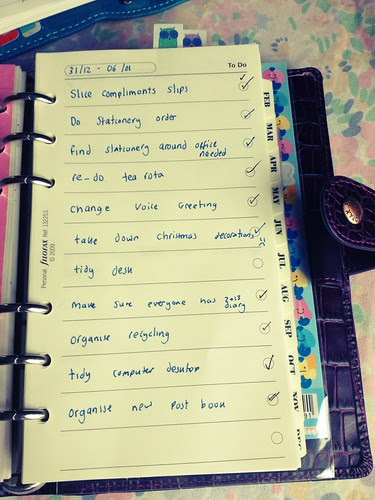 31/12 - 06/01
To Do
Slice compliments slips
Do stationery order
find stationery around office
needed
re-do tea rota
change voice greeting
take down Christmas decorations
tidy desk
make sure everyone has 2013
diary
organise recycling
tidy computer desktop
organise new post book
Personal filofax Ref 132253
© 2009
FEB
MAR
APR
MAY
JUN
JUL
AUG
SEP
OCT
NOV